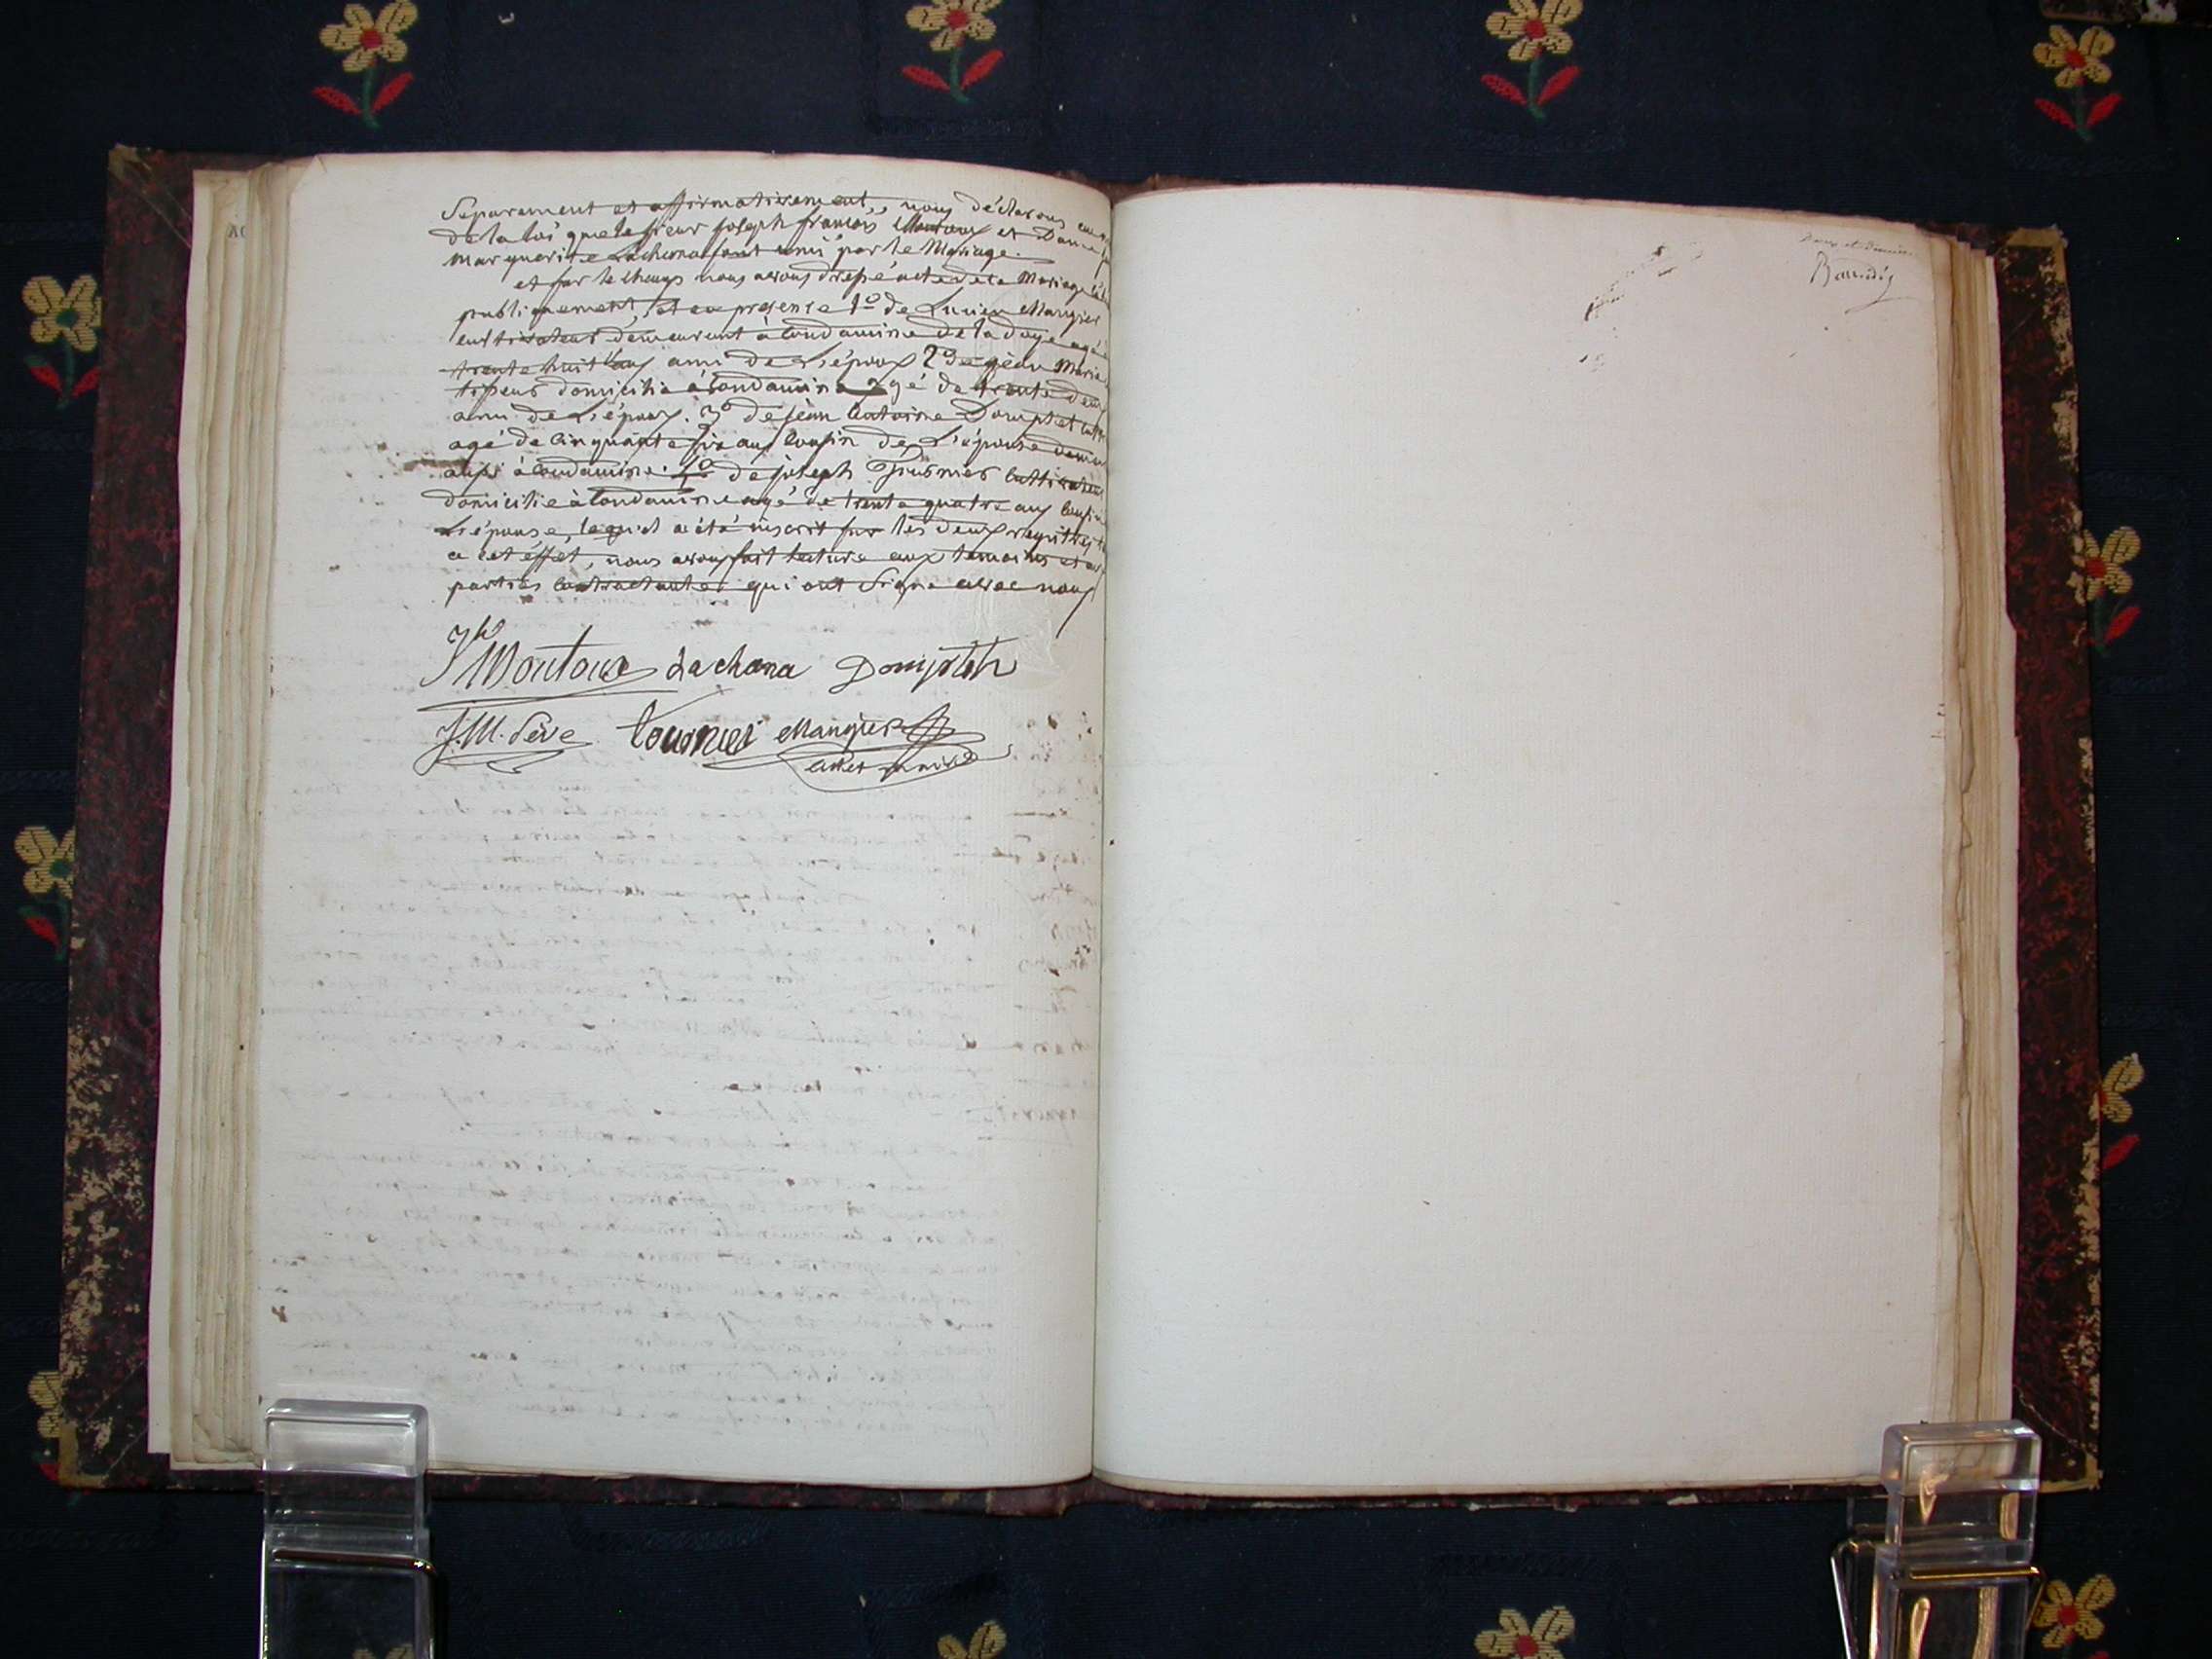 Separement et affirmativement, nous déclarons au
de la loi que le sieur joseph françois Moutoux et Dame
Marguerite Lachana sont unis par le Mariage.
et sur le champ nous avons dressé acte de ce Mariage
publiquement, et en presence 1º de Lucien Mangier
cultivateur demeurant à Condamine de la doye agé
trente huit ans ami de L'époux 2º de jean Marie
domicilié à Condamine agé de trente deux
ami de L'époux. 3º de jean Antoine Domptet
agé de cinquante six ans cousin de L'épouse
aussi à Condamine. 4º de joseph Tournier cultivateur
domicilié à Condamine agé de trente quatre ans cousin
L'épouse, lequel a été inscrit sur les deux registres
a cet éffet, nous avons fait lecture aux temoins et
parties contractantes qui ont Signé avec nous
Jh Moutoux Lachana Domptet
J.M. Sève tournier Mangier
Baudin